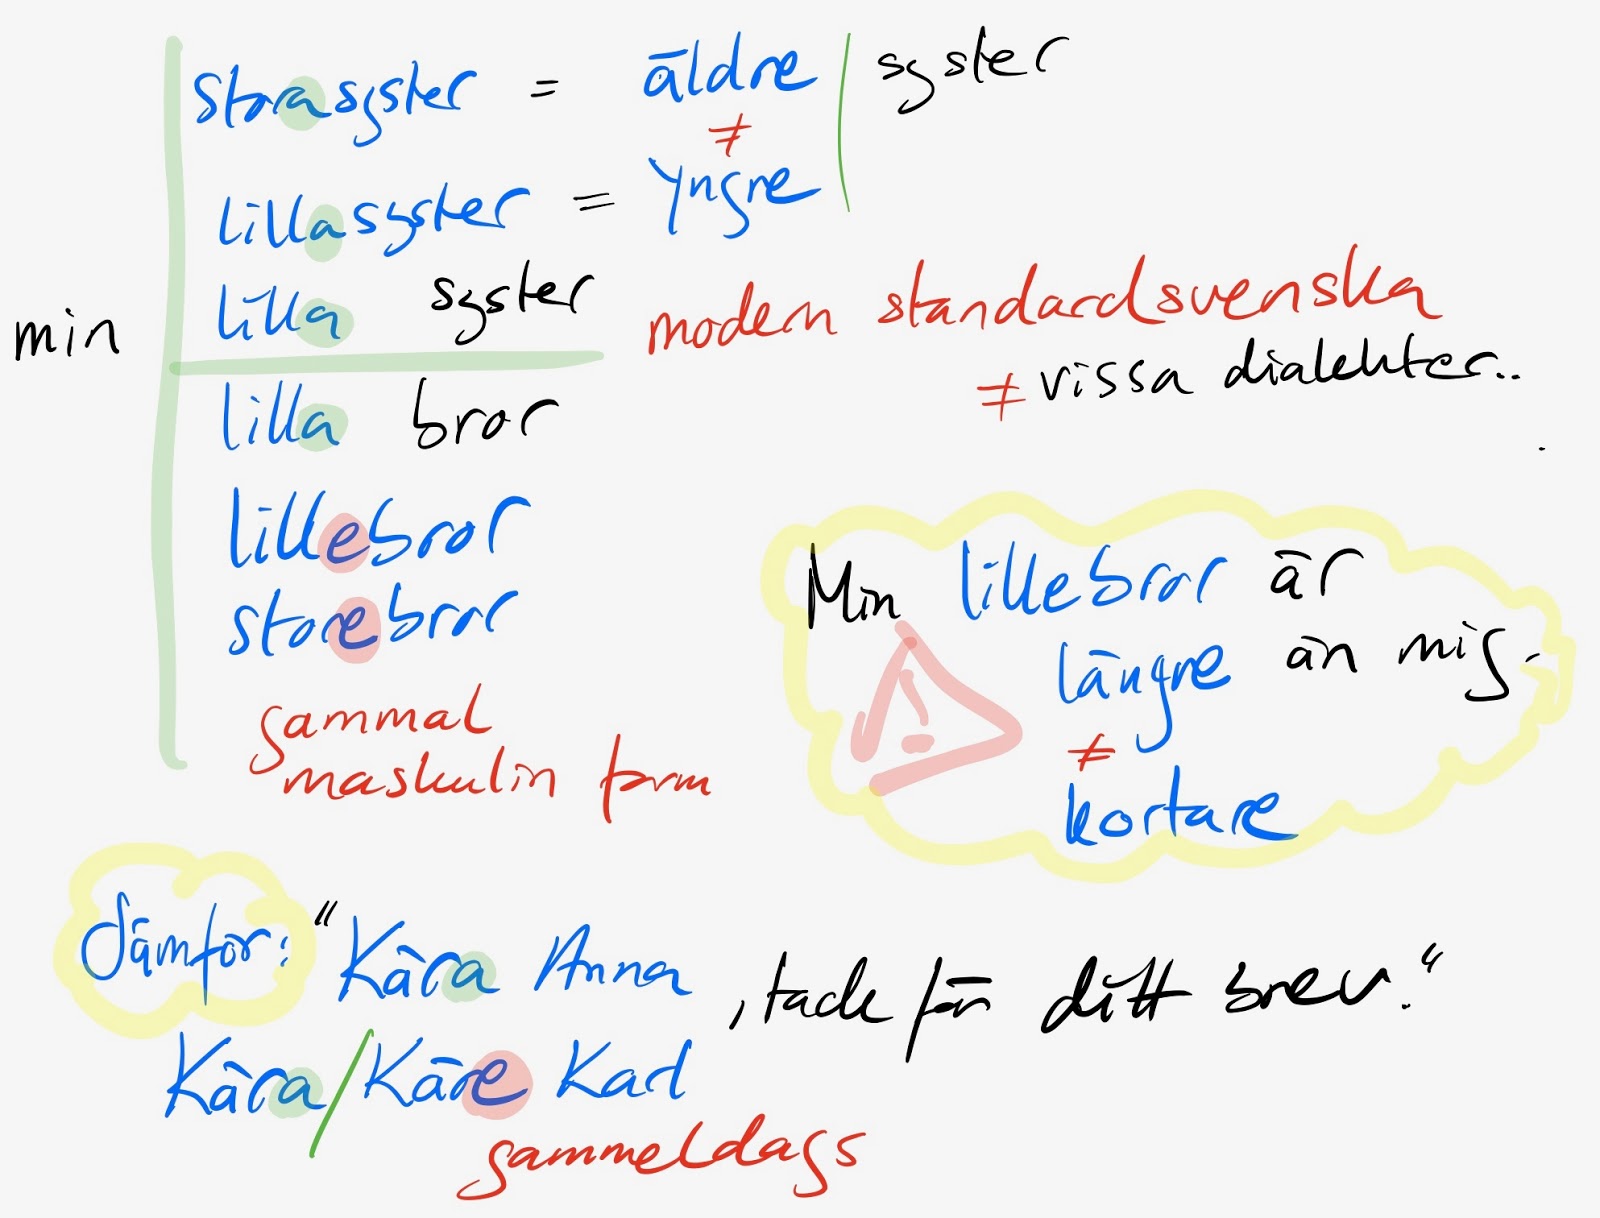 storasyster = äldre | syster
≠
lillasyster = yngre
lilla syster
modern standardsvenska
min
≠ vissa dialekter..
lilla bror
lillebror
storebror
gammal
maskulin form
Min lillebror är
längre än mig.
≠
kortare
!
Jämför: "Kära Anna, tack för ditt brev."
Kära/Käre Karl
gammeldags